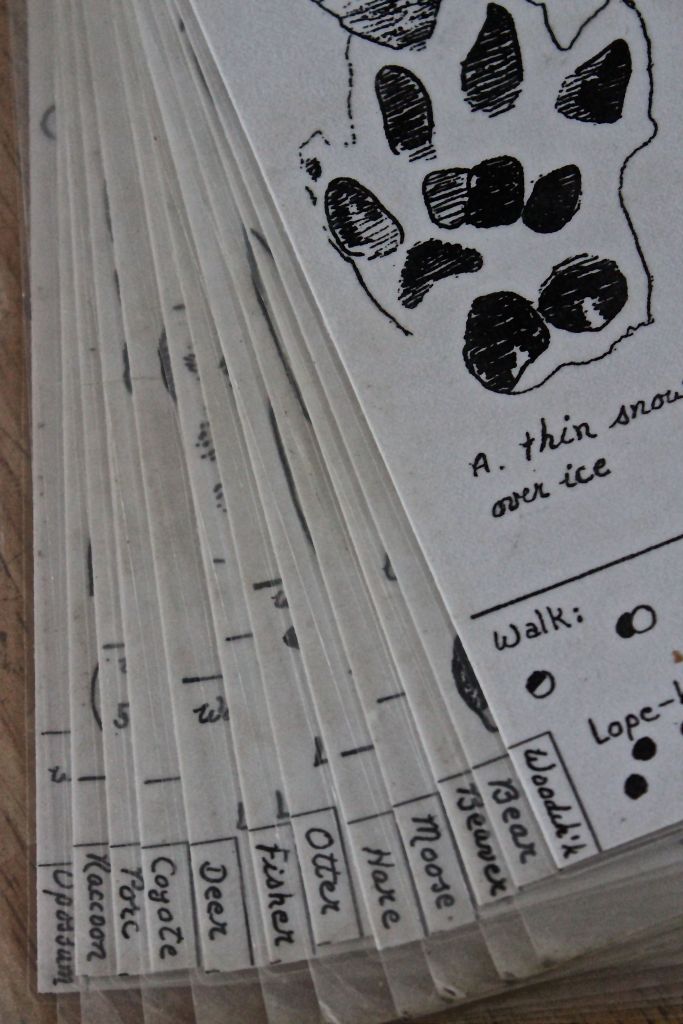 A. thin snow
over ice
Walk:
Lope-
Woodch'k
Bear
Beaver
Moose
Hare
Otter
Fisher
Deer
Coyote
Porc
Raccoon
Opossum